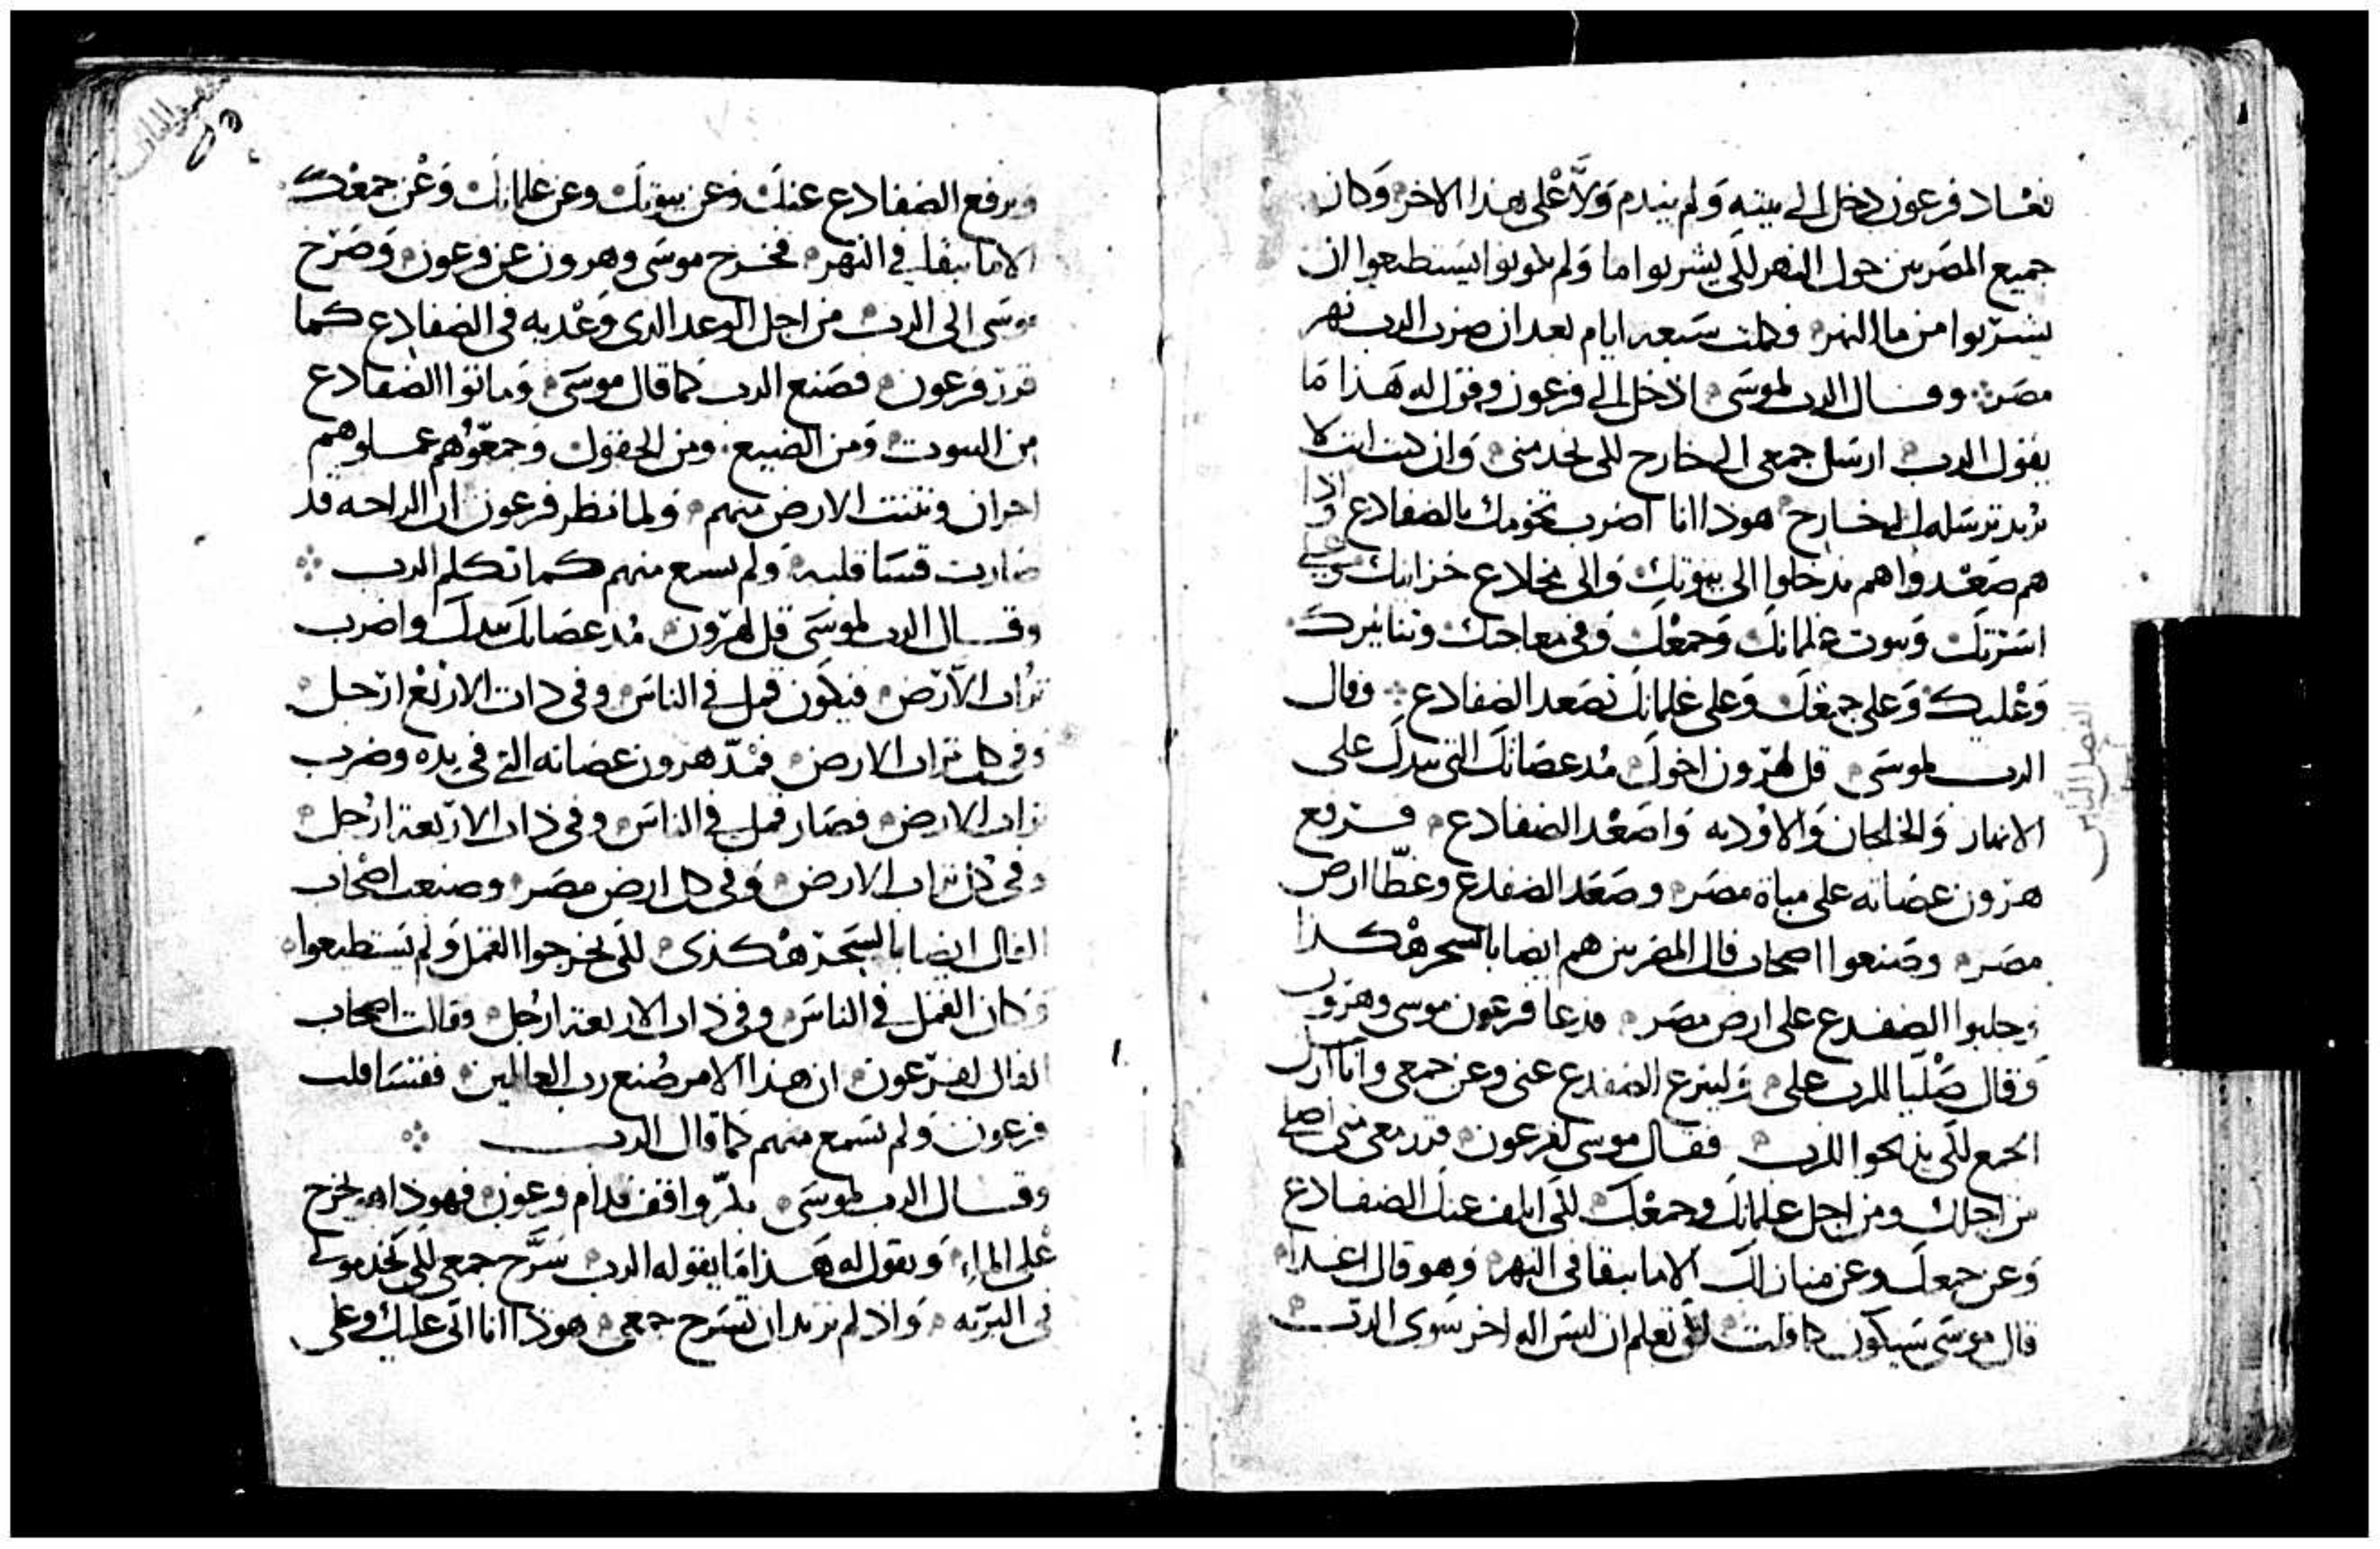 فعاد فرعون دخل الى بيته ولم يندم ولا على هذا الاخر وكان
جميع المصريين حول النهر للي يشربوا ما ولم يكونوا يستطيعوا ان
يشربوا من ما النهر وكملت سبعه ايام بعد ان ضرب الرب نهر
مصر وقال الرب لموسى ادخل الى فرعون وقول له هذا ما
يقول الرب ارسل جمعي الى خارج للى يخدمنى وان كنت انت لا
تريد ترسله الى خارج هوذا انا اضرب تخومك بالضفادع واذا
هم صعدوا هم يدخلوا الى بيوتك والى مخادع خزاينك وعلي
اسرتك وبيوت غلمانك وجمعك وفى معاجنك وتنانيرك
وعليك وعلى جمعك وعلى غلمانك تصعد الضفادع وقال
الرب لموسى قل لهرون اخوك مد عصاتك التى بيدك على
الانهار والخلجان والاوديه واصعد الضفادع فرفع
هرون عصاته على مياة مصر وصعد الضفدع وغطا ارض
مصر وصنعوا اصحاب فال المصريين هم ايضا بالسحر هكذا
وجلبوا الضفدع على ارض مصر فدعا فرعون موسى وهرون
وقال صليا للرب على ولينزع الضفدع عنى وعن جمعى وانا ارسل
الجمع للى يذبحوا للرب فقال موسى لفرعون قرر معى متى اصلي
من اجلك ومن اجل غلمانك وجمعك للى اتلف عنك الضفادع
وعن جمعك وعن منازلك الا ما يبقا فى النهر وهو قال غدا
قال موسى سيكون كما قلت للى تعلم ان ليس اله اخر سوى الرب
الفصل الثامن
ويرفع الضفادع عنك وعن بيوتك وعن غلمانك وعن جمعك
الا ما يبقا في النهر فخرج موسى وهرون عن فرعون وصرخ
موسى الى الرب من اجل الوعد الدى وعد به فى الضفادع كما
قرر فرعون فصنع الرب كما قال موسى وماتوا الضفادع
من البيوت ومن الضيع ومن الحقول وجمعوهم عملوهم
اجران ونتنت الارض منهم ولما نظر فرعون ان الراحه قد
صارت قسا قلبه ولم يسمع منهم كما تكلم الرب
وقال الرب لموسى قل لهرون مد عصاتك بيدك واضرب
تراب الارض فيكون قمل في الناس وفى دات الاربع ارجل
وفى كل تراب الارض فمد هرون عصاته التى في يده وضرب
تراب الارض فصار قمل في الناس وفى ذات الاربعه ارجل
وفى كل تراب الارض وفى كل ارض مصر وصنعت اصحاب
الفال ايضا بالسحر هكذى للى يخرجوا القمل ولم يستطيعوا
وكان القمل في الناس وفى ذات الاربعه ارجل وقالت اصحاب
الفال لفرعون ان هذا الامر صنع رب العالمين فقسا قلب
فرعون ولم يسمع منهم كما قال الرب
وقال الرب لموسى بكر واقف قدام فرعون فهوذا هو يخرج
على الماء وتقول له هذا ما يقوله الرب سرح جمعى للى يخدمونى
فى البريه واذ لم تريد ان تسرح جمعى هوذا انا اتى عليك وعلى